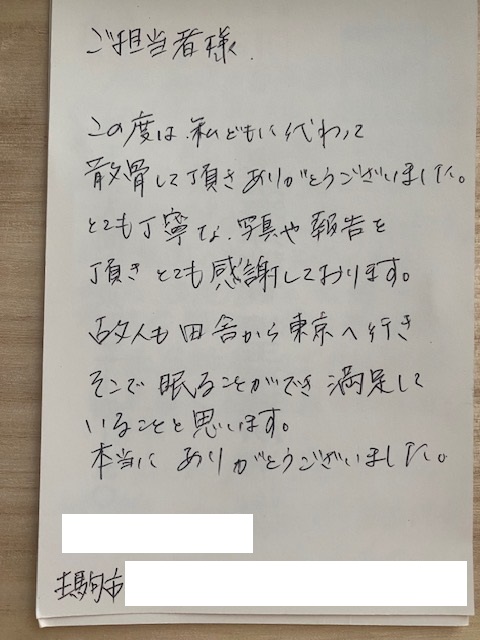 ご担当者様
この度は、私どもに代わって
散骨して頂きありがとうございました。
とても丁寧な、写真や報告を
頂きとても感謝しております。
故人も田舎から東京へ行き
そこで眠ることができ満足して
いることと思います。
本当にありがとうございました。
市